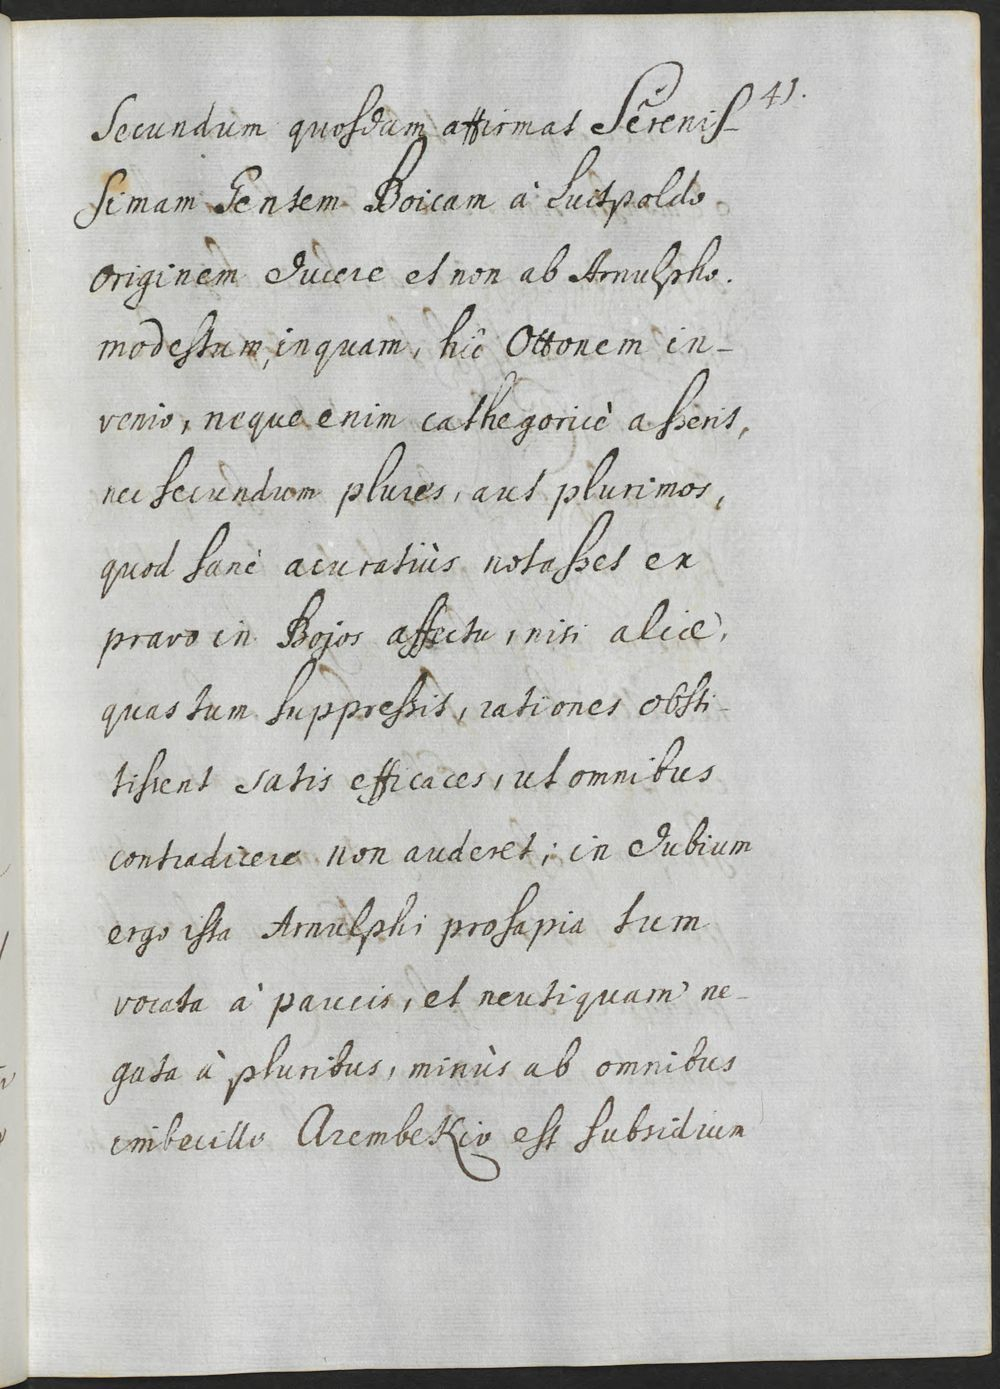 41.
Secundum quosdam affirmat Serenis-
simam Gentem Boicam à Luitpoldo
originem ducere et non ab Arnulpho.
modestum, inquam, hîc Ottonem in-
venio, neque enim cathegoricè asserit,
nec secundum plures, aut plurimos,
quod sanè acuratiùs notasset ex
pravo in Bojos affectu, nisi aliæ,
quas tum suppressit, rationes obsti-
tissent satis efficaces, ut omnibus
contradicere non auderet; in dubium
ergo ista Arnulphi prosapia tum
vocata à paucis, et neutiquam ne-
gata à pluribus, minùs ab omnibus
imbecillo Arembekio est subsidium